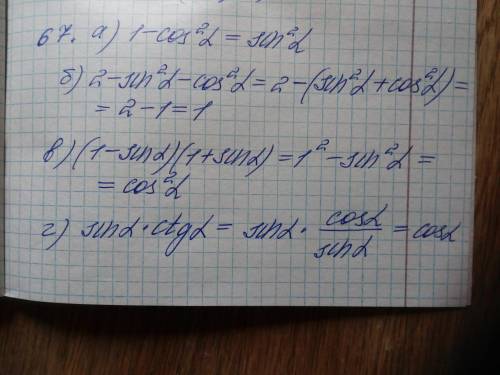 67. а) 1-cos²α = sin²α
б) 2-sin²α-cos²α = 2-(sin²α+cos²α)=
= 2-1=1
в) (1-sinα)(1+sinα) = 1²-sin²α =
= cos²α
г) sinα·ctgα = sinα· cosα/sinα = cosα